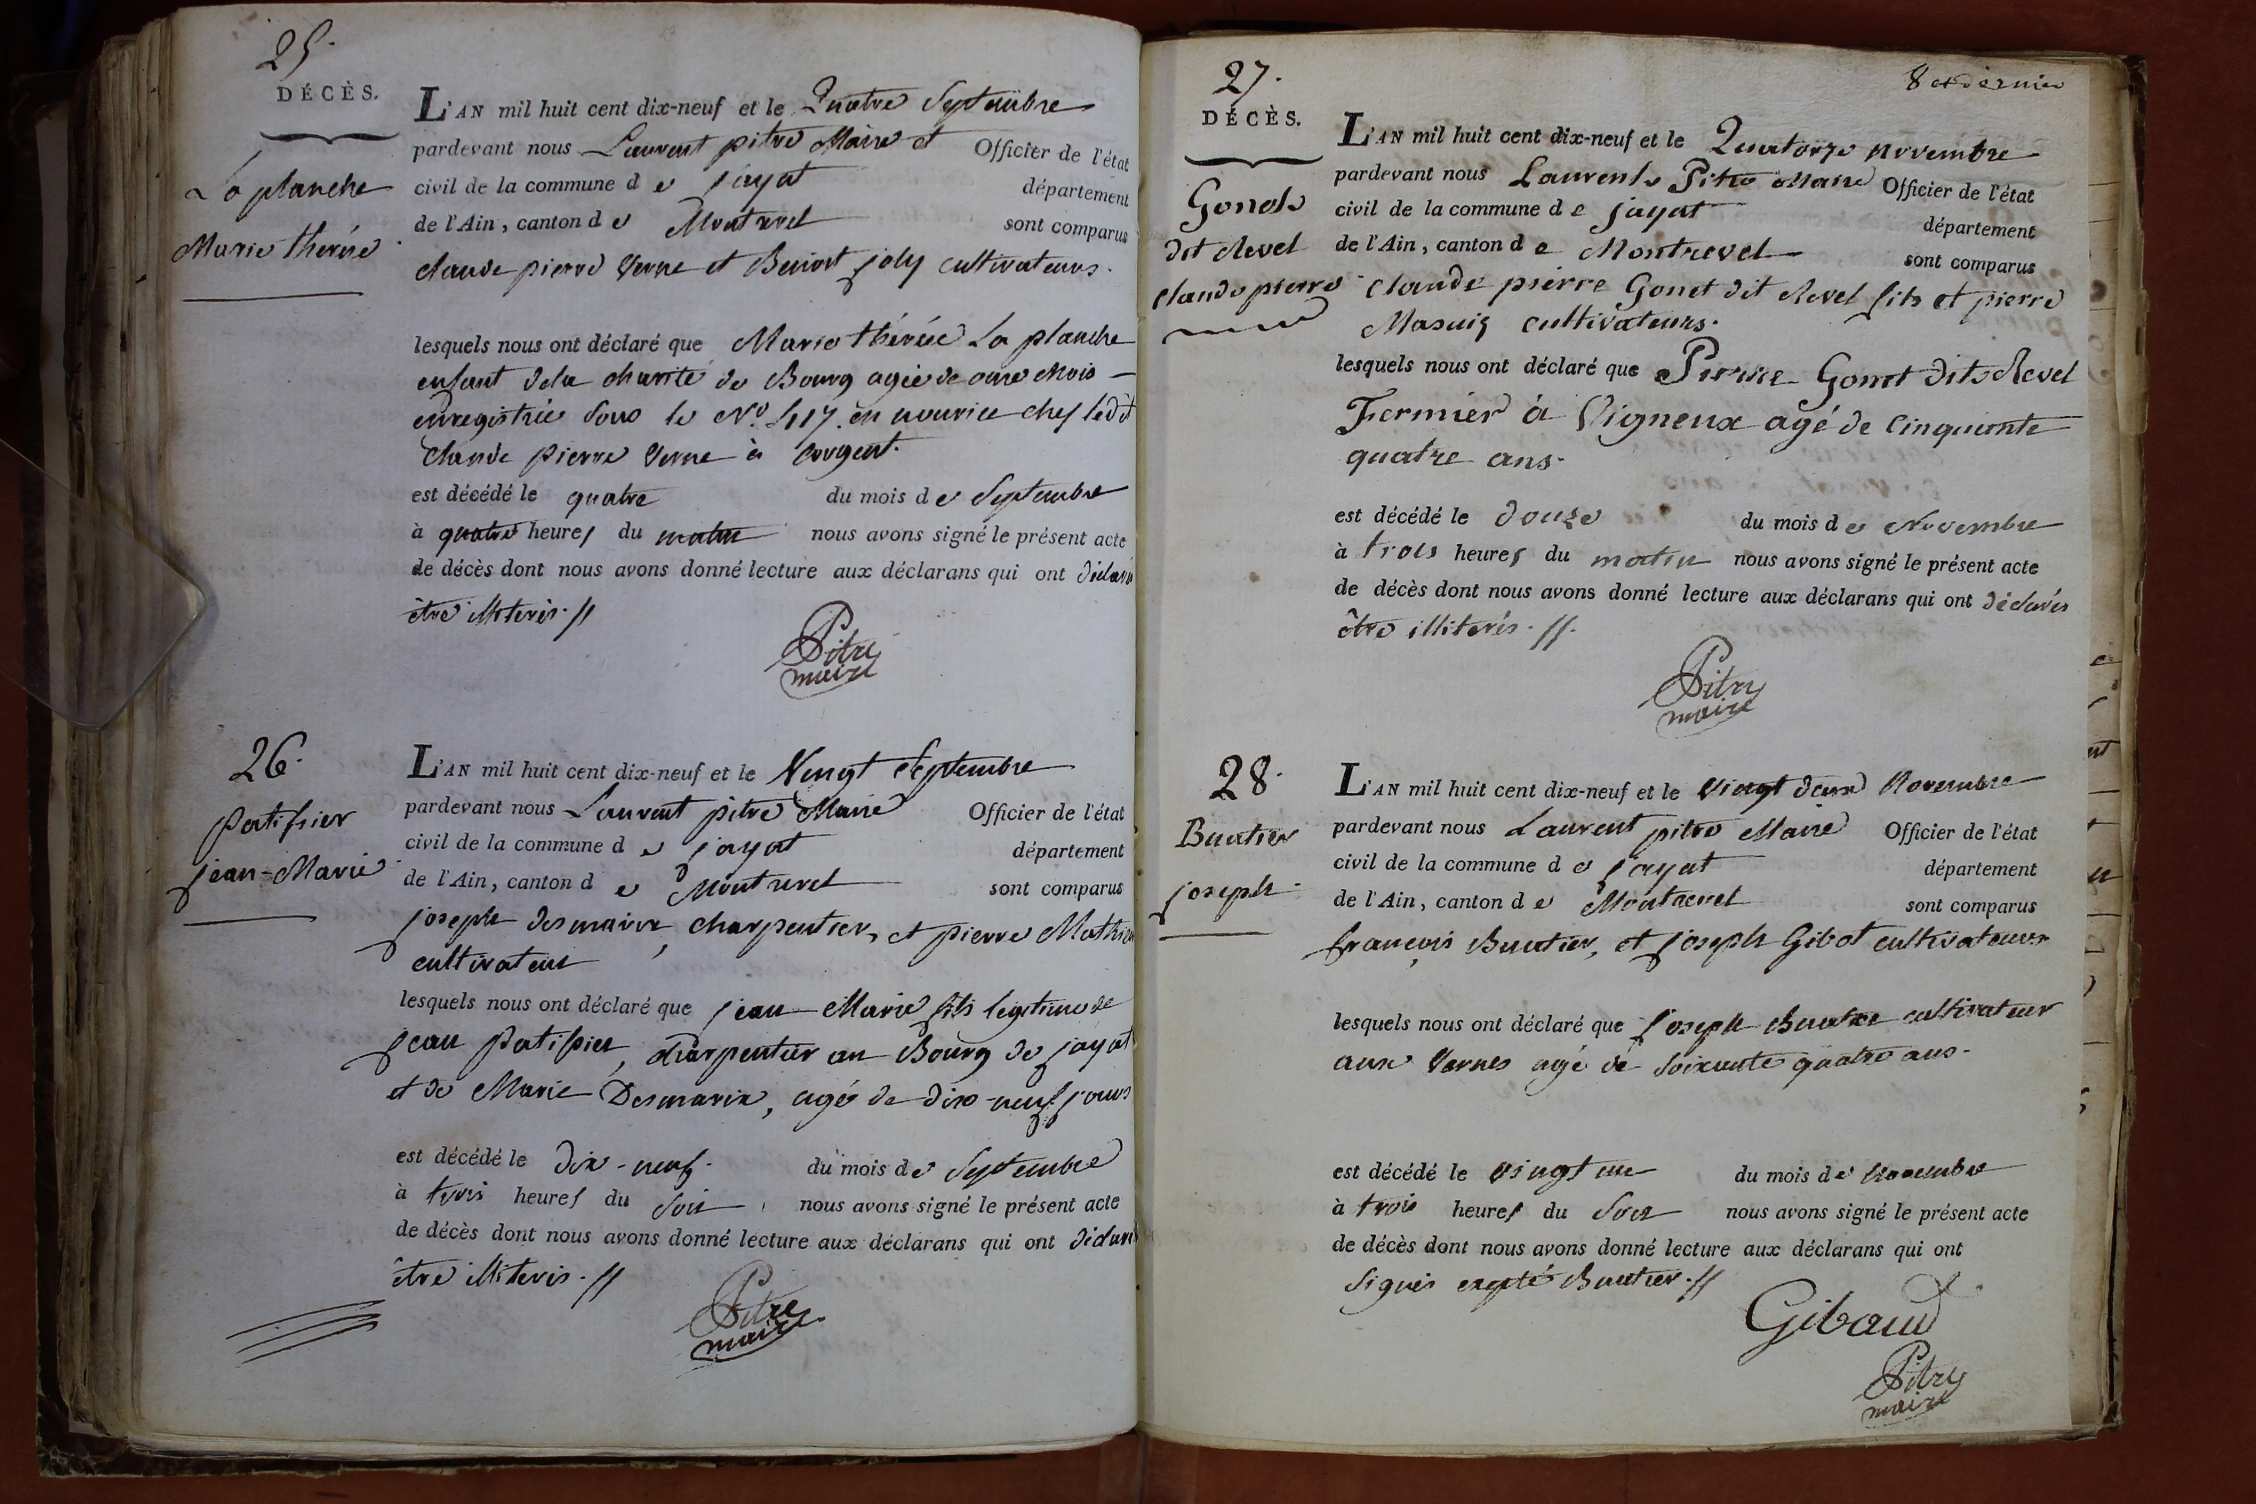 25.
DÉCÈS.
La planche
Marie thérèse
L'AN mil huit cent dix-neuf et le Quatre Septembre
pardevant nous Laurent pitre Maire et Officier de l'état
civil de la commune de jayat département
de l'Ain, canton de Montrevel sont comparus
claude pierre Verne et Benoit joly cultivateurs.
lesquels nous ont déclaré que Marie thérèse La planche
enfant dela charité de Bourg agée de onze Mois
enregistrée sous le N.º 417. en nourice chez ledit
Claude pierre Verne à Corgent.
est décédé le quatre du mois de Septembre
à quatre heures du matin nous avons signé le présent acte
de décès dont nous avons donné lecture aux déclarans qui ont déclaré
être illiterés. //
Pitre
maire
26.
patissier
jean-Marie
L'AN mil huit cent dix-neuf et le Vingt Septembre
pardevant nous Laurent pitre Maire Officier de l'état
civil de la commune de jayat département
de l'Ain, canton de Montrevel sont comparus
joseph desmaris, charpentier, et pierre Mathieu
cultivateur
lesquels nous ont déclaré que jean Marie fils legitime de
jean Patissier, charpentier au Bourg de jayat
et de Marie Desmarix, agés de dix-neuf jours
est décédé le dix-neuf. du mois de Septembre
à trois heures du soir nous avons signé le présent acte
de décès dont nous avons donné lecture aux déclarans qui ont déclaré
être illiterés. //
Pitre
maire
8 et dernier
27.
DÉCÈS.
Gonod
dit Revel
claude pierre
L'AN mil huit cent dix-neuf et le Quatorze novembre
pardevant nous Laurent Pitre Maire Officier de l'état
civil de la commune de jayat département
de l'Ain, canton de Montrevel sont comparus
claude pierre Gonet dit Revel fils et pierre
Masuiz cultivateurs.
lesquels nous ont déclaré que Pierre Gonot dit Revel
Fermier à Vigneux agé de Cinquante
quatre ans.
est décédé le douze du mois de Novembre
à trois heures du matin nous avons signé le présent acte
de décès dont nous avons donné lecture aux déclarans qui ont déclarés
être illiterés. //.
Pitre
maire
28.
Buatier
joseph
L'AN mil huit cent dix-neuf et le vingt deux Novembre
pardevant nous Laurent pitre Maire Officier de l'état
civil de la commune de jayat département
de l'Ain, canton de Montrevel sont comparus
françois Buatier, et joseph Gibot cultivateurs
lesquels nous ont déclaré que joseph Buatier cultivateur
aux Vernes agé de soixante quatre ans.
est décédé le vingt un du mois de Novembre
à trois heures du soir nous avons signé le présent acte
de décès dont nous avons donné lecture aux déclarans qui ont
signés excepté Buatier. //
Gibaud
Pitre
maire